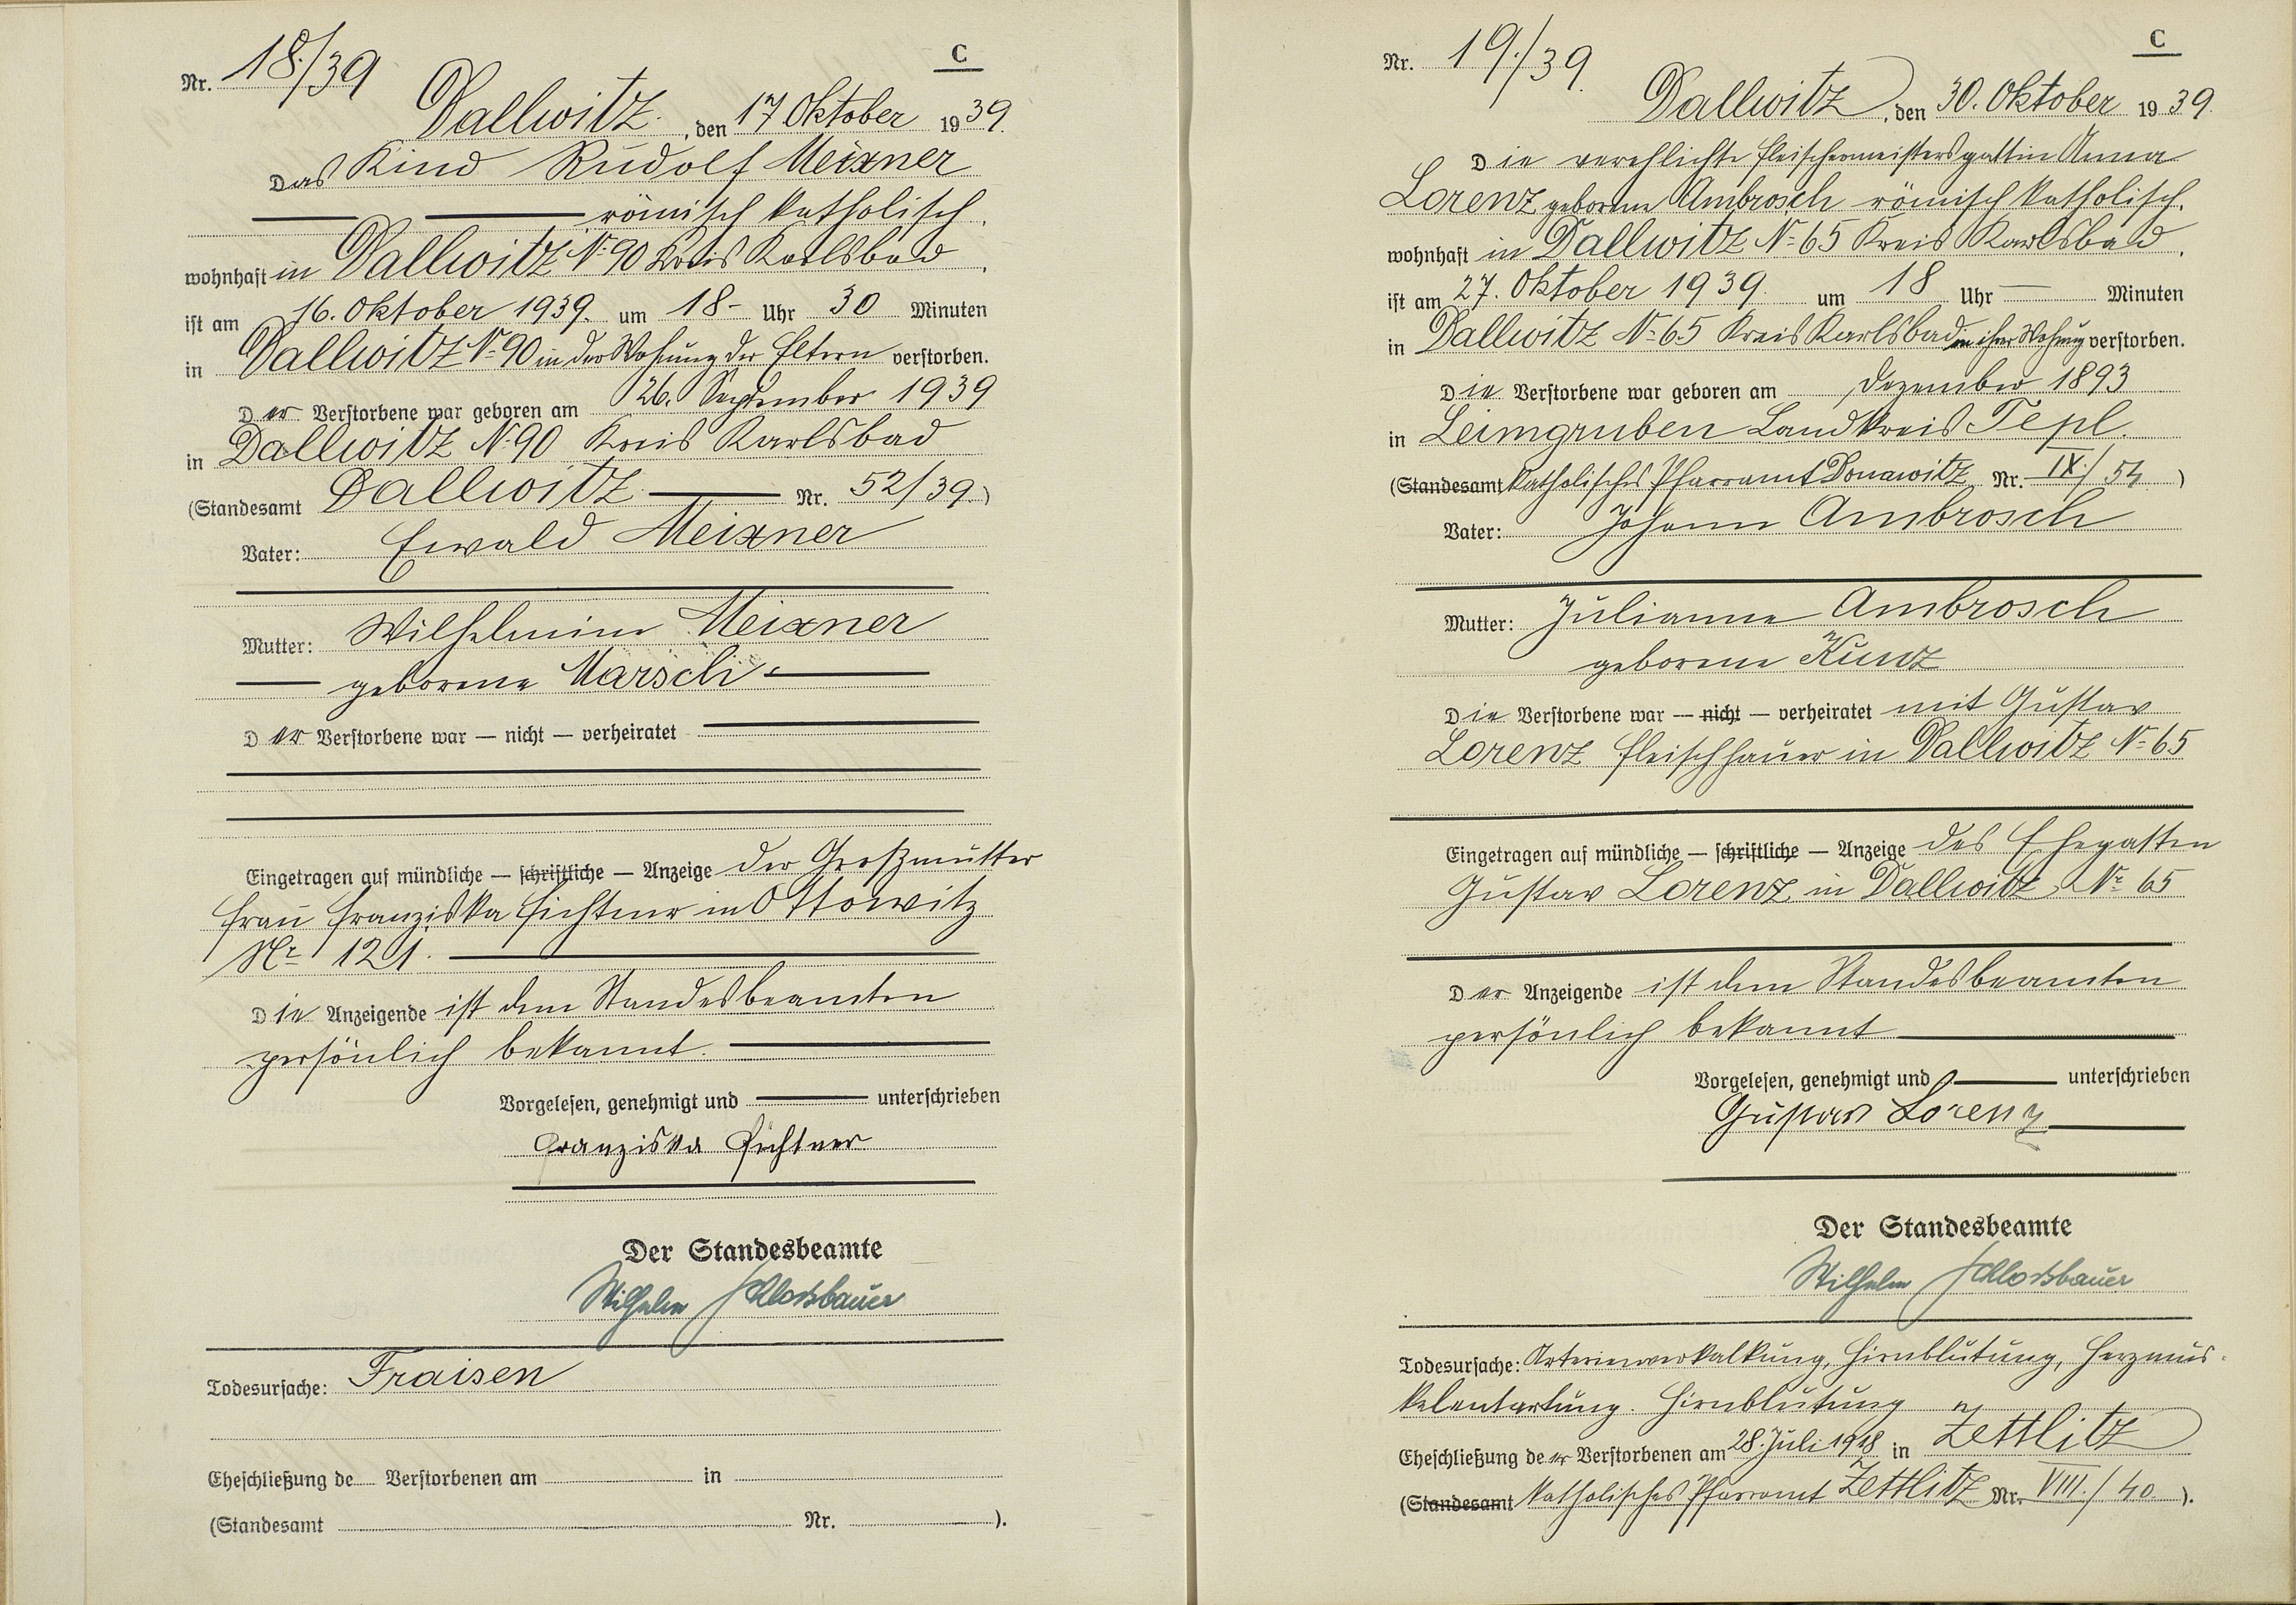 C
Nr. 18./39
Dallwitz, den 17 Oktober 1939.
Das Kind Rudolf Meixner
römisch katholisch.
wohnhaft in Dallwitz N: 90 Kreis Karlsbad.
ist am 16. Oktober 1939. um 18- Uhr 30 Minuten
in Dallwitz N: 90 in der Wohnung der Eltern verstorben.
Der Verstorbene war geboren am 26. September 1939
in Dallwitz N: 90 Kreis Karlsbad
(Standesamt Dallwitz Nr. 52/39.)
Vater: Ewald Meixner
Mutter: Wilhelmine Meixner
geborene Marschi
Der Verstorbene war — nicht — verheiratet
Eingetragen auf mündliche — schriftliche — Anzeige der Großmutter
Frau Franziska Fichtner in Ottowitz
Nr. 121.
Die Anzeigende ist dem Standesbeamten
persönlich bekannt.
Vorgelesen, genehmigt und unterschrieben
Franziska Fichtner
Der Standesbeamte
Wilhelm Schlossbauer
Todesursache: Fraisen
Eheschließung de Verstorbenen am in
(Standesamt Nr. ).
C
Nr. 19./39.
Dallwitz, den 30. Oktober 1939.
Die verehlichte Fleischermeistersgattin Anna
Lorenz geborene Ambrosch römisch katholisch.
wohnhaft in Dallwitz N: 65 Kreis Karlsbad.
ist am 27. Oktober 1939. um 18 Uhr — Minuten
in Dallwitz N: 65 Kreis Karlsbad in ihrer Wohnung verstorben.
Die Verstorbene war geboren am Dezember 1893
in Leimgruben Landkreis Tepl.
(Standesamt Katholisches Pfarramt Donawitz Nr. IX./54.)
Vater: Johann Ambrosch
Mutter: Julianne Ambrosch
geborene Kunz
Die Verstorbene war — nicht — verheiratet mit Gustav
Lorenz Fleischhauer in Dallwitz N: 65
Eingetragen auf mündliche — schriftliche — Anzeige des Ehegatten
Gustav Lorenz in Dallwitz Nr. 65
Der Anzeigende ist dem Standesbeamten
persönlich bekannt
Vorgelesen, genehmigt und unterschrieben
Gustav Lorenz
Der Standesbeamte
Wilhelm Schlossbauer
Todesursache: Arterienverkalkung, Hirnblutung, Herzmus-
kelentartung. Hirnblutung
Eheschließung der Verstorbenen am 28. Juli 1918 in Zettlitz
(Standesamt Katholisches Pfarramt Zettlitz Nr. VIII./40.).